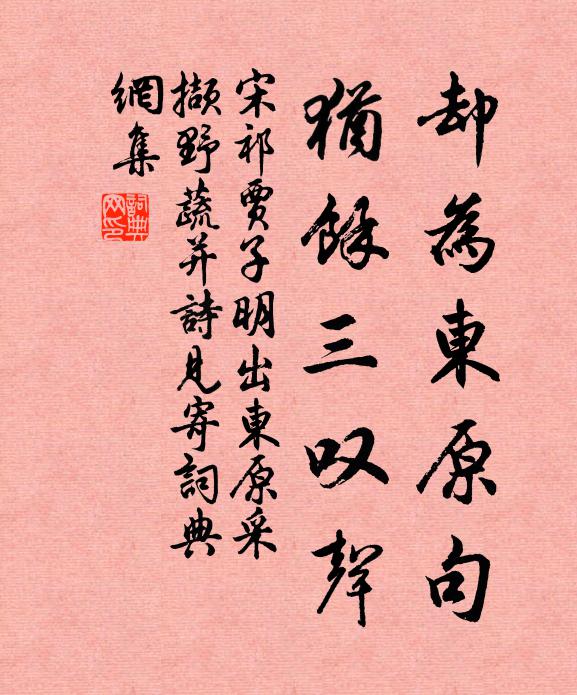 却為東原句
猶餘三叹聲
宋祁賈子明出東原采
撷野蔬并詩見寄詞典
網集
詞典網印